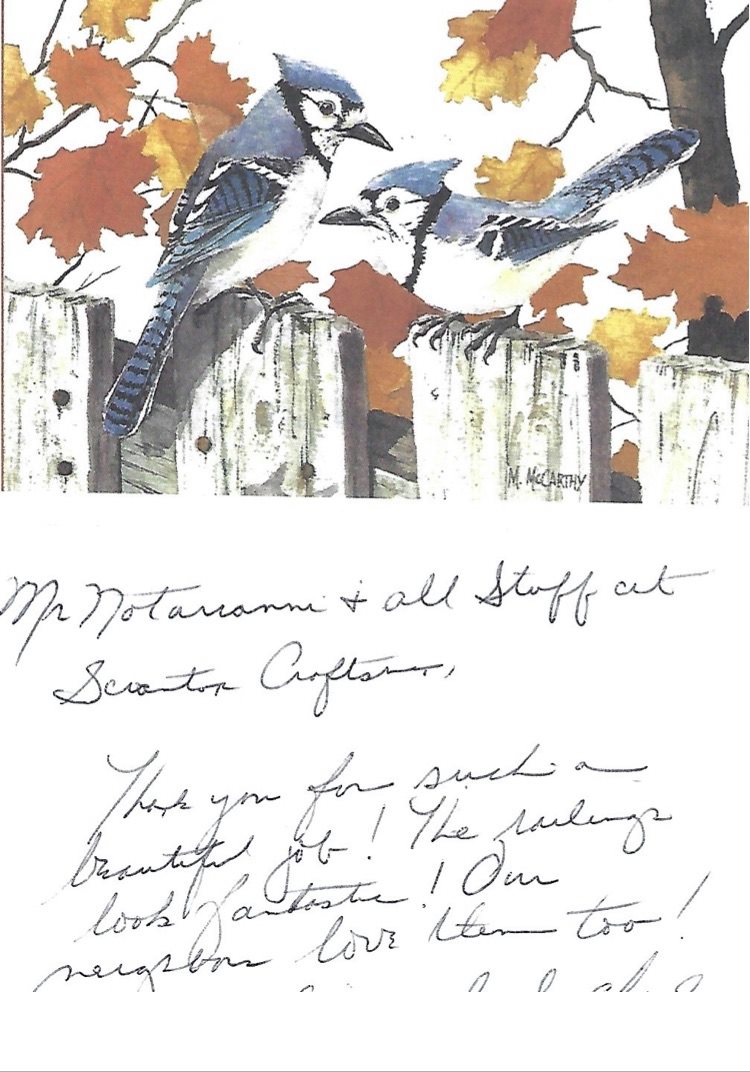 M. McCARTHY
Mr Notarianni & all Staff at
Scranton Craftsmen,
Thank you for such a
beautiful job! The railings
look fantastic! Our
neighbors love them too!